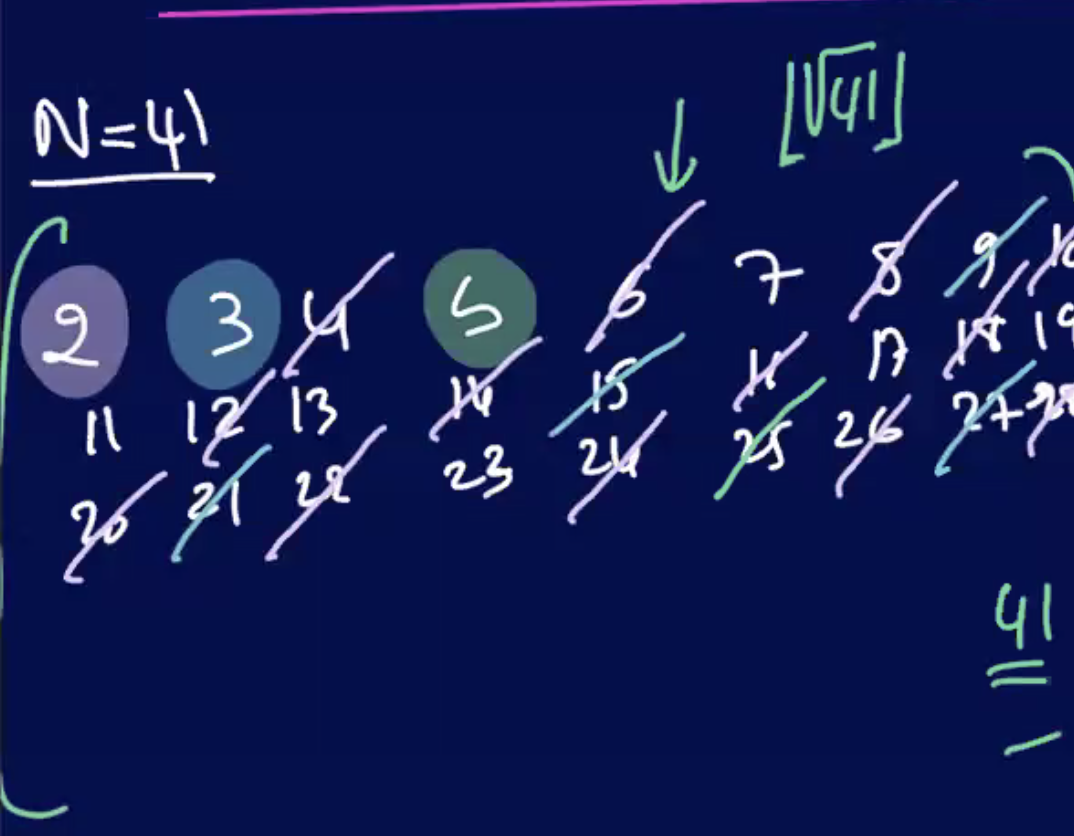 N=41
⌊√41⌋
2 3 4 5 6 7 8 9 10
11 12 13 14 15 16 17 18 19
20 21 22 23 24 25 26 27 28
41